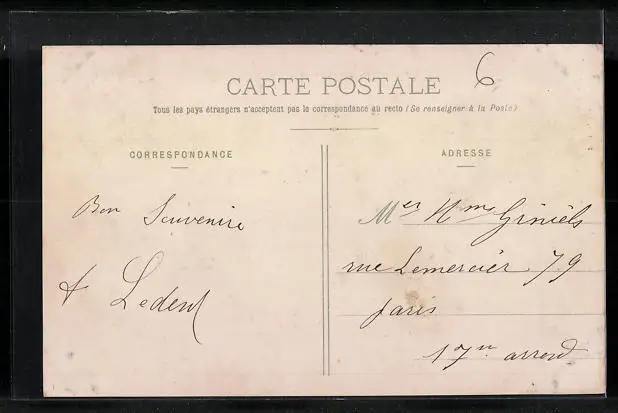 6
CARTE POSTALE
Tous les pays étrangers n'acceptent pas la correspondance au recto (Se renseigner à la Poste)
CORRESPONDANCE
Bon Souvenir
Ledent
ADRESSE
rue Lemercier 79
paris
17e arrond